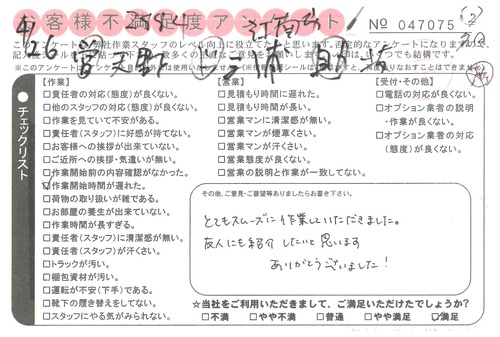 お客様不満足度アンケート
No 047075
4/26
チェックリスト
【作業】
□責任者の対応(態度)が良くない。
□他のスタッフの対応(態度)が良くない。
□作業を見ていて不安がある。
□責任者(スタッフ)に好感が持てない。
□お客様への挨拶が出来ていない。
□ご近所への挨拶・気遣いが無い。
□作業開始前の内容確認がなかった。
☑作業開始時間が遅れた。
□荷物の取り扱いが雑である。
□お部屋の養生が出来ていない。
□作業時間が長すぎる。
□責任者(スタッフ)に清潔感が無い。
□責任者(スタッフ)が汗くさい。
□トラックが汚い。
□梱包資材が汚い。
□運転が不安(下手)である。
□靴下の履き替えをしてない。
□スタッフにやる気がみられない。
【営業】
□見積もり時間に遅れた。
□見積もり時間が長い。
□営業マンに清潔感が無い。
□営業マンが煙草くさい。
□営業マンが汗くさい。
□営業態度が良くない。
□営業の説明と作業が一致してない。
【受付・その他】
□電話の対応が良くない。
□オプション業者の説明
・作業が良くない。
□オプション業者の対応
(態度)が良くない。
その他、ご意見・ご要望等ありましたらお書き下さい。
とてもスムーズに作業していただきました。
友人にも紹介したいと思います
ありがとうございました!
☆当社をご利用いただきまして、ご満足いただけたでしょうか?
□不満 □やや不満 □普通 □やや満足 ☑満足